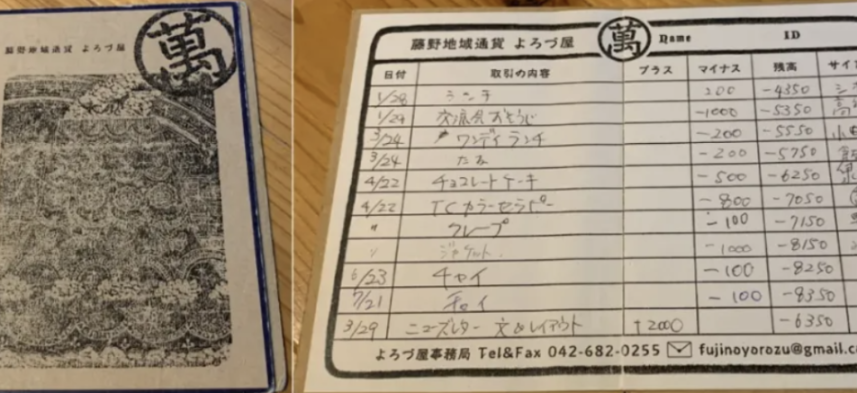 藤野地域通貨 よろづ屋
萬
藤野地域通貨 よろづ屋 萬 Name ID
日付 取引の内容 プラス マイナス 残高 サイ
1/28 ランチ 200 -4350
1/29 -1000 -5350
3/24 ワンディランチ -200 -5550
3/24 -200 -5750
4/22 チョコレートケーキ -500 -6250
4/22 TCカラーセラピー -800 -7050
〃 クレープ -100 -7150
〃 ジャケット -1000 -8150
6/23 チャイ -100 -8250
7/21 チャイ -100 -8350
3/29 ニューズレター 文&レイアウト +2000 -6350
よろづ屋事務局 Tel&Fax 042-682-0255 fujinoyorozu@gmail.c